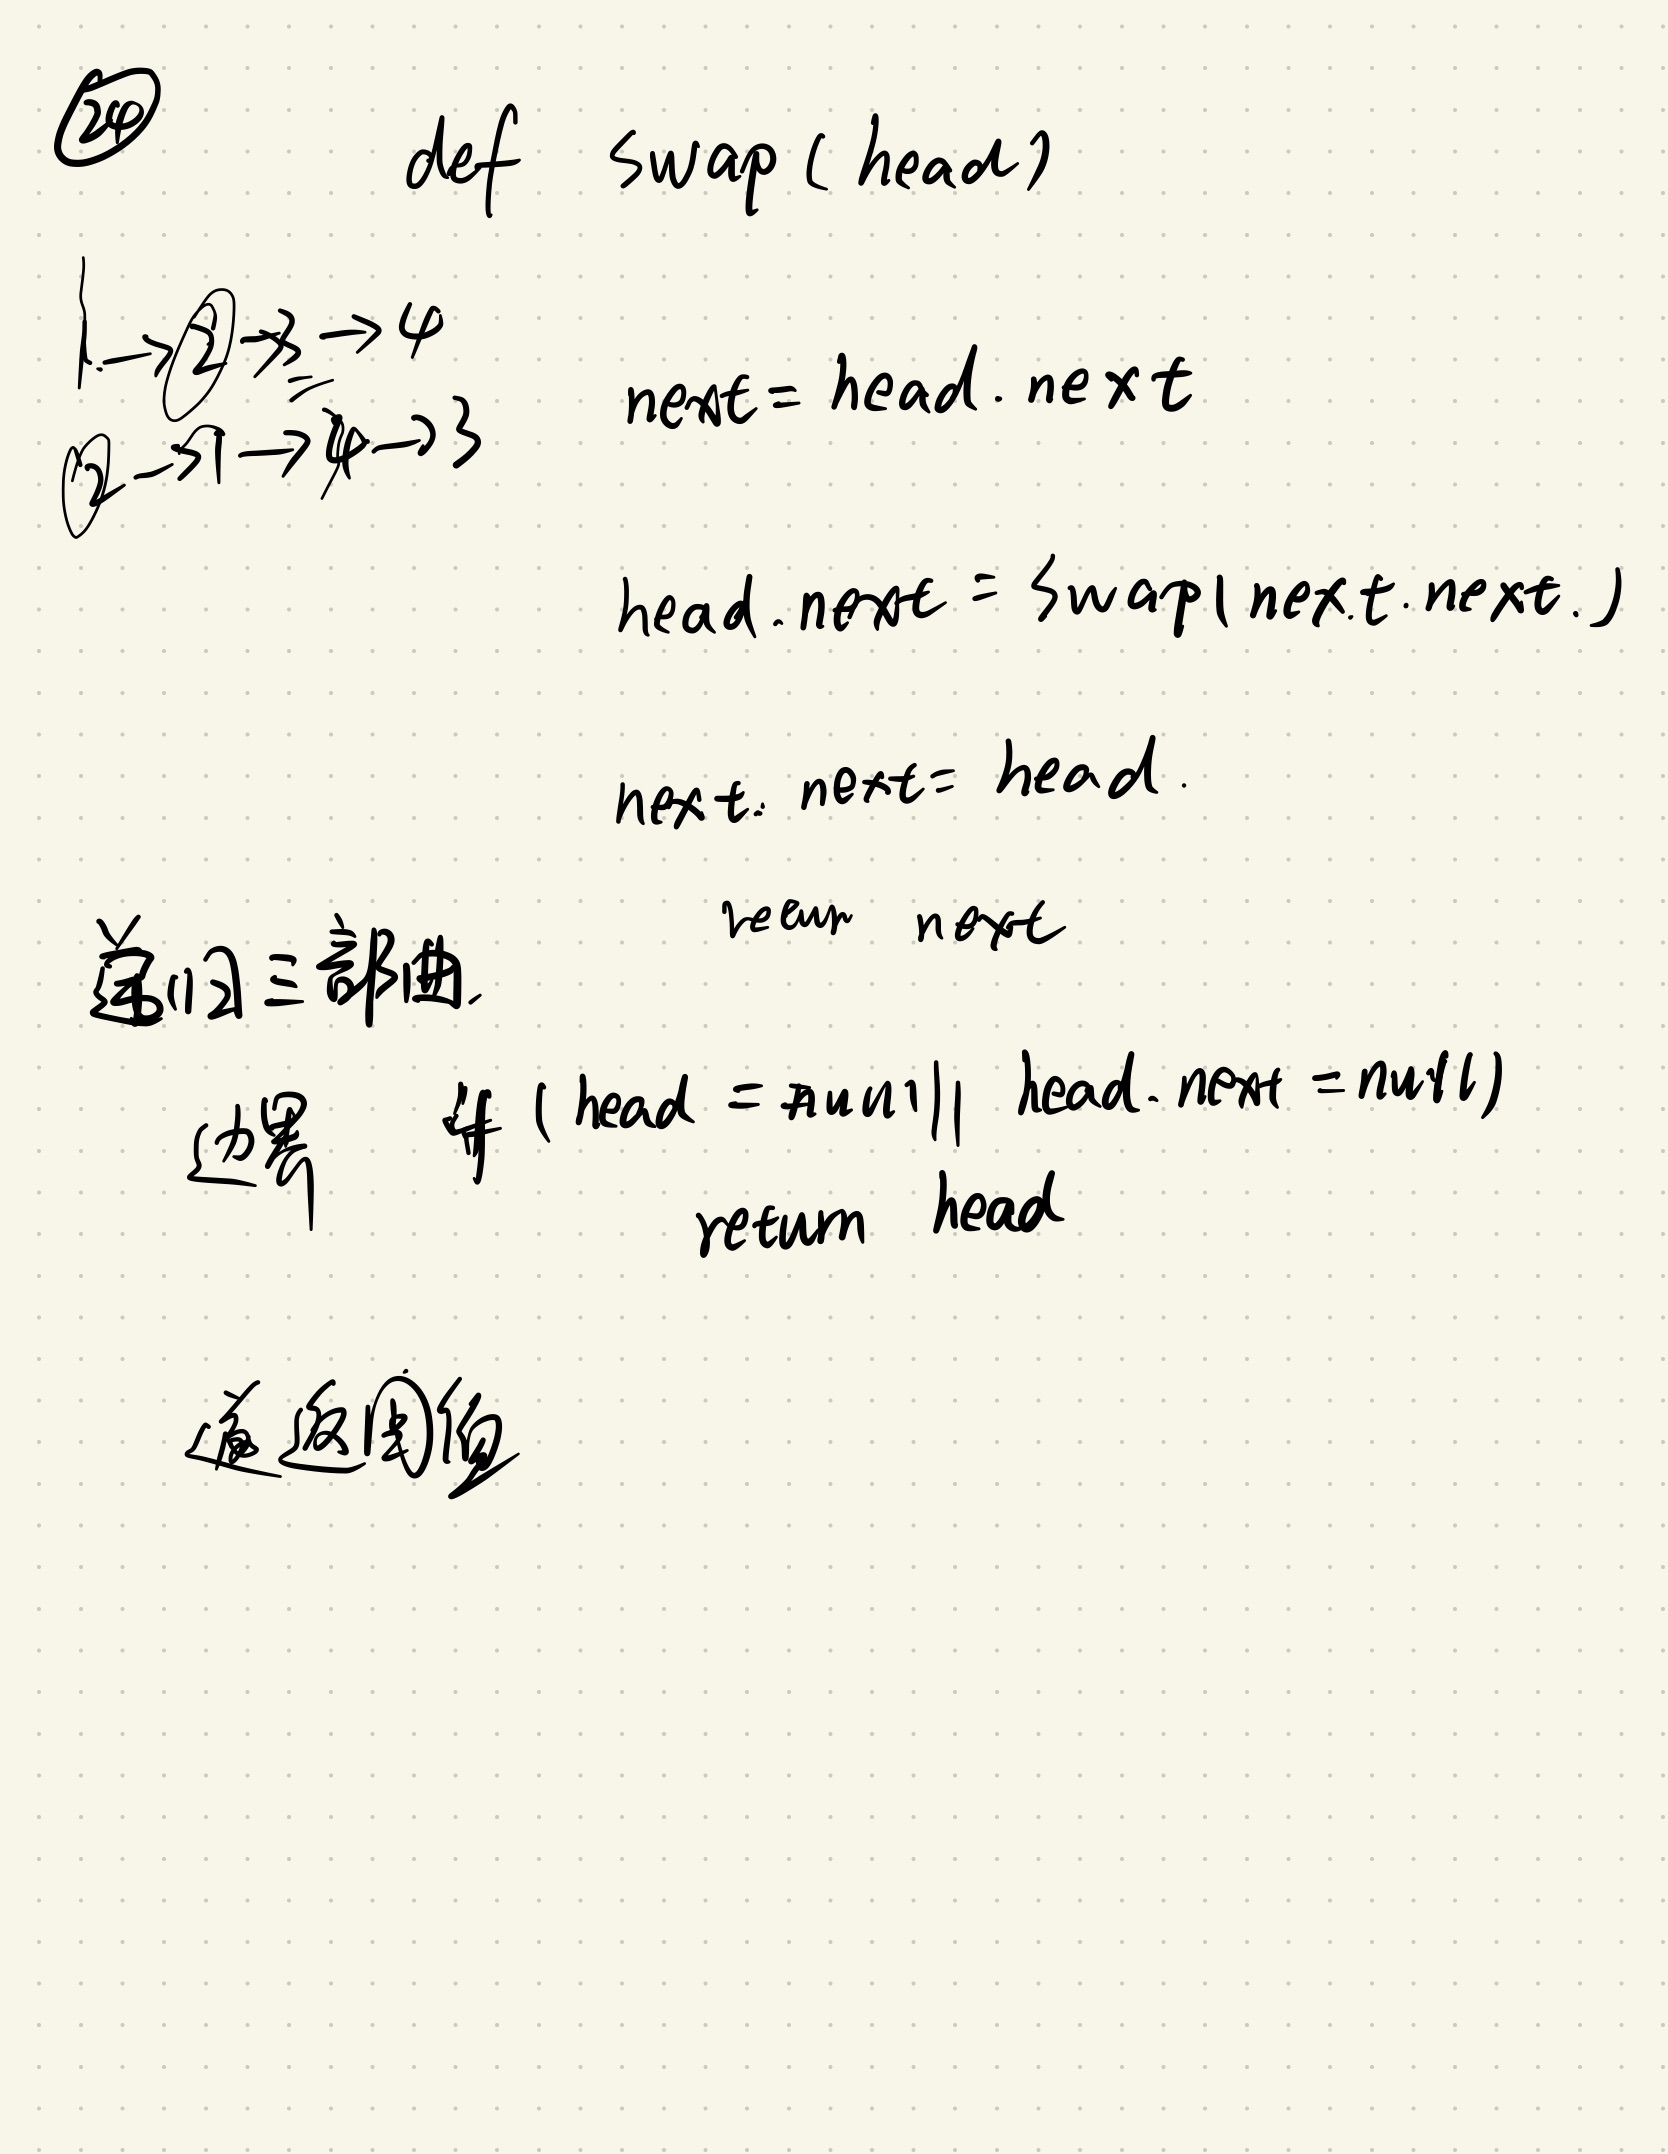 24
def swap(head)
1→2→3→4
2→1→4→3
next = head.next
head.next = swap(next.next.)
next.next = head.
next
递归三部曲.
边界 if (head = null || head.next = null)
return head
返回值